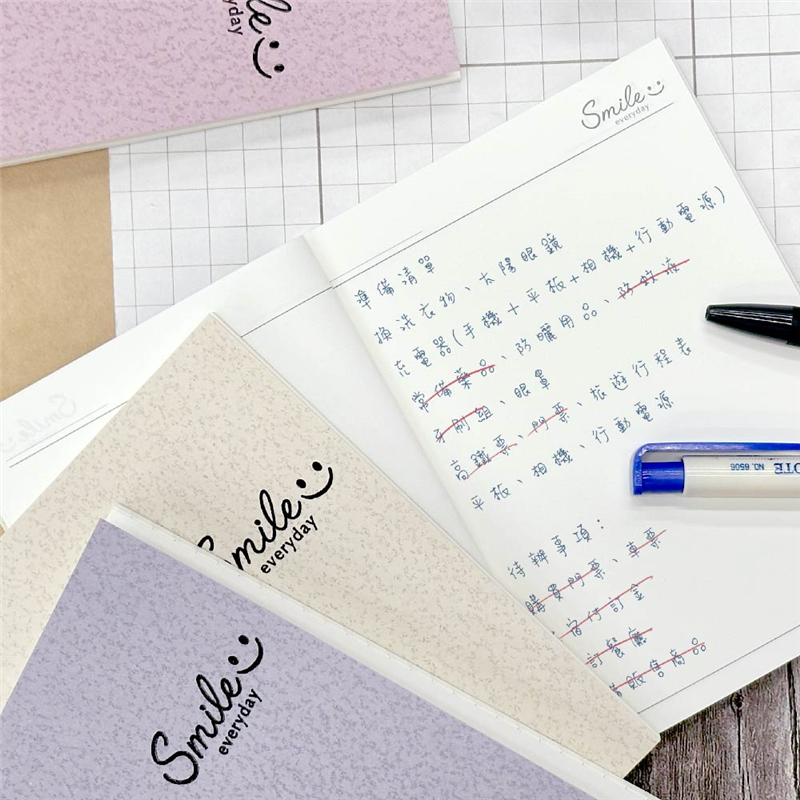 Smile
everyday
準備清單
換洗衣物、太陽眼鏡
充電器(手機+平板+相機+行動電源)
常備藥品、防曬用品、防蚊液
牙刷組、眼罩
高鐵票、門票、旅遊行程表
平板、相機、行動電源
待辦事項:
購買門票、車票
宿訂金
訂餐廳
販售商品
NO. 6506
OTE
Smile
everyday
Smile
everyday
le
everyday